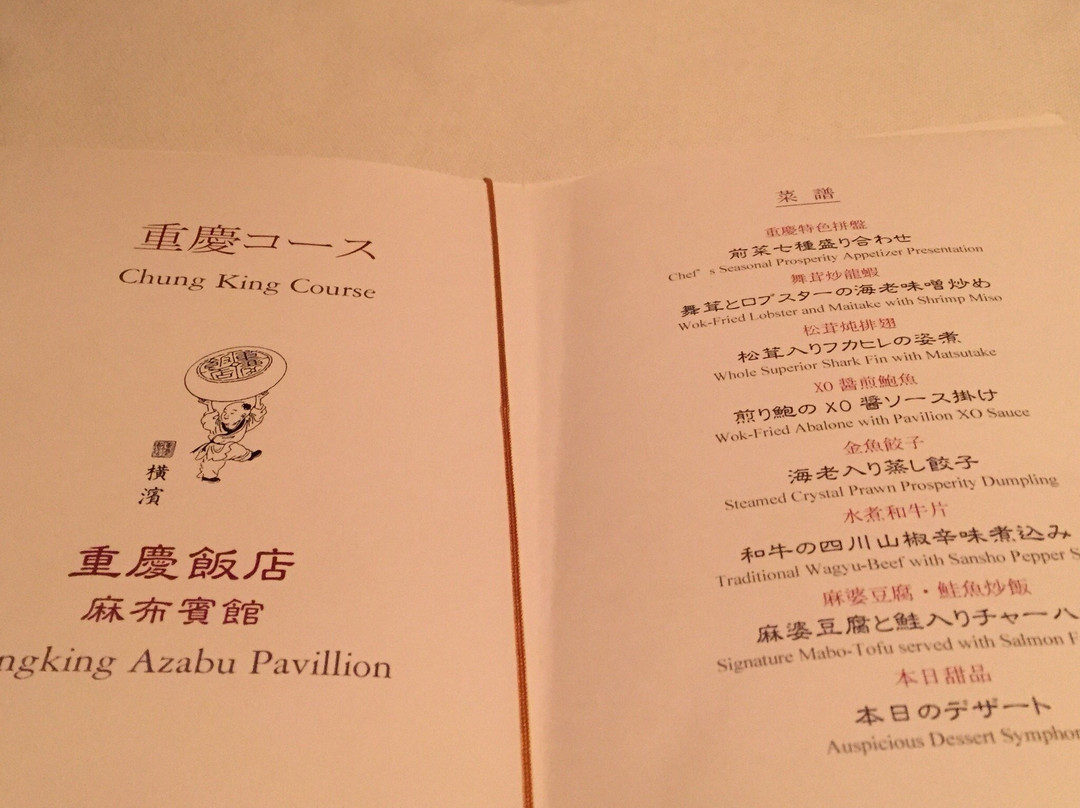 重慶コース
Chung King Course
横
濱
重慶飯店
麻布賓館
ngking Azabu Pavillion
菜 譜
重慶特色拼盤
前菜七種盛り合わせ
Chef’s Seasonal Prosperity Appetizer Presentation
舞茸炒龍蝦
舞茸とロブスターの海老味噌炒め
Wok-Fried Lobster and Maitake with Shrimp Miso
松茸炖排翅
松茸入りフカヒレの姿煮
Whole Superior Shark Fin with Matsutake
XO 醤煎鮑魚
煎り鮑の XO 醤ソース掛け
Wok-Fried Abalone with Pavilion XO Sauce
金魚餃子
海老入り蒸し餃子
Steamed Crystal Prawn Prosperity Dumpling
水煮和牛片
和牛の四川山椒辛味煮込み
Traditional Wagyu-Beef with Sansho Pepper S
麻婆豆腐・鮭魚炒飯
麻婆豆腐と鮭入りチャーハ
Signature Mabo-Tofu served with Salmon F
本日甜品
本日のデザート
Auspicious Dessert Symphon